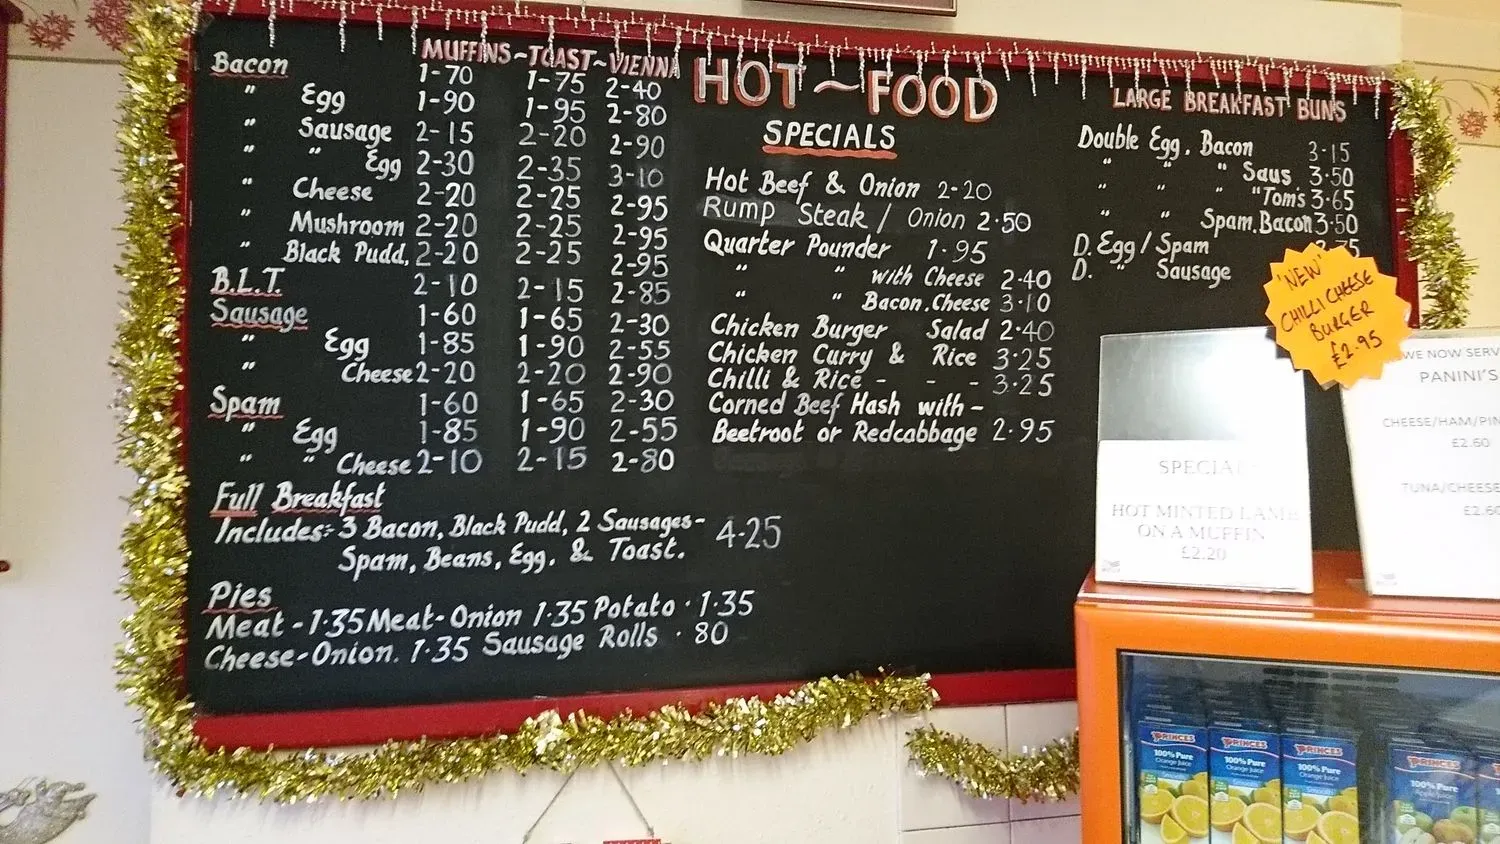 MUFFINS~TOAST~VIENNA
Bacon 1-70 1-75 2-40
" Egg 1-90 1-95 2-80
" Sausage 2-15 2-20 2-90
" " Egg 2-30 2-35 3-10
" Cheese 2-20 2-25 2-95
" Mushroom 2-20 2-25 2-95
" Black Pudd, 2-20 2-25 2-95
B.L.T. 2-10 2-15 2-85
Sausage 1-60 1-65 2-30
" Egg 1-85 1-90 2-55
" Cheese 2-20 2-20 2-90
Spam 1-60 1-65 2-30
" Egg 1-85 1-90 2-55
" " Cheese 2-10 2-15 2-80
Full Breakfast
Includes:- 3 Bacon, Black Pudd, 2 Sausages- 4-25
Spam, Beans, Egg, & Toast.
Pies
Meat - 1·35 Meat-Onion 1·35 Potato · 1·35
Cheese-Onion. 1·35 Sausage Rolls · 80
HOT~FOOD
SPECIALS
Hot Beef & Onion 2-20
Rump Steak / Onion 2·50
Quarter Pounder 1·95
" " with Cheese 2·40
" " Bacon.Cheese 3·10
Chicken Burger Salad 2·40
Chicken Curry & Rice 3·25
Chilli & Rice - - - 3·25
Corned Beef Hash with-
Beetroot or Redcabbage 2·95
LARGE BREAKFAST BUNS
Double Egg. Bacon 3·15
" " " Saus 3·50
" " " "Tom's 3·65
" " Spam.Bacon 3·50
D. Egg/Spam
D. " Sausage
"NEW"
CHILLI CHEESE
BURGER
£2.95
SPECIAL
HOT MINTED LAMB
ON A MUFFIN
£2.20
WE NOW SERV
PANINI'S
CHEESE/HAM/PIN
£2.60
TUNA/CHEESE
£2.60
PRINCES
100% Pure
Orange Juice
Smooth
PRINCES
100% Pure
Orange Juice
Smooth
PRINCES
100% Pure
Orange Juice
Smooth
PRINCES
100% Pure
Apple Juice